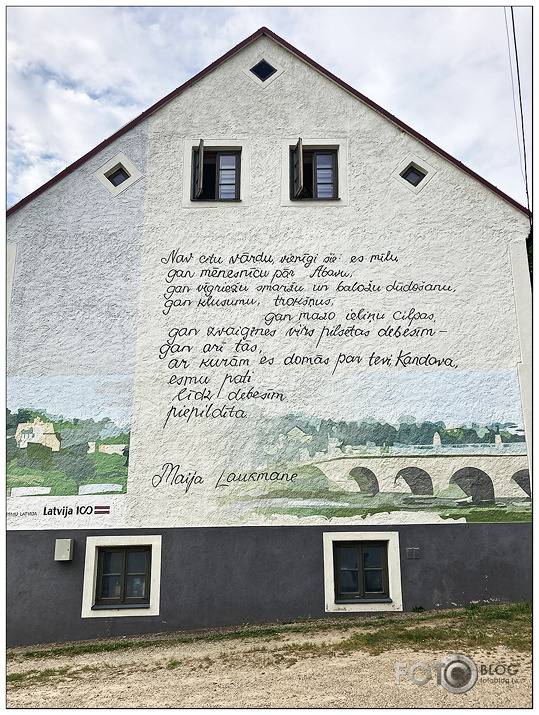 Nav citu vārdu, vienīgi šie: es mīlu
gan mēnesnīcu pār Abavu,
gan vīgriežu smaržu un baložu dūdošanu,
gan klusumu, trokšņus,
gan mazo ieliņu cilpas,
gan zvaigznes virs pilsētas debesīm –
gan arī tās,
ar kurām es domās par tevi, Kandava,
esmu pati
līdz debesīm
piepildīta.
Maija Laukmane
LATVIJA
Latvija 100
FOTO BLOG
fotoblog.lv